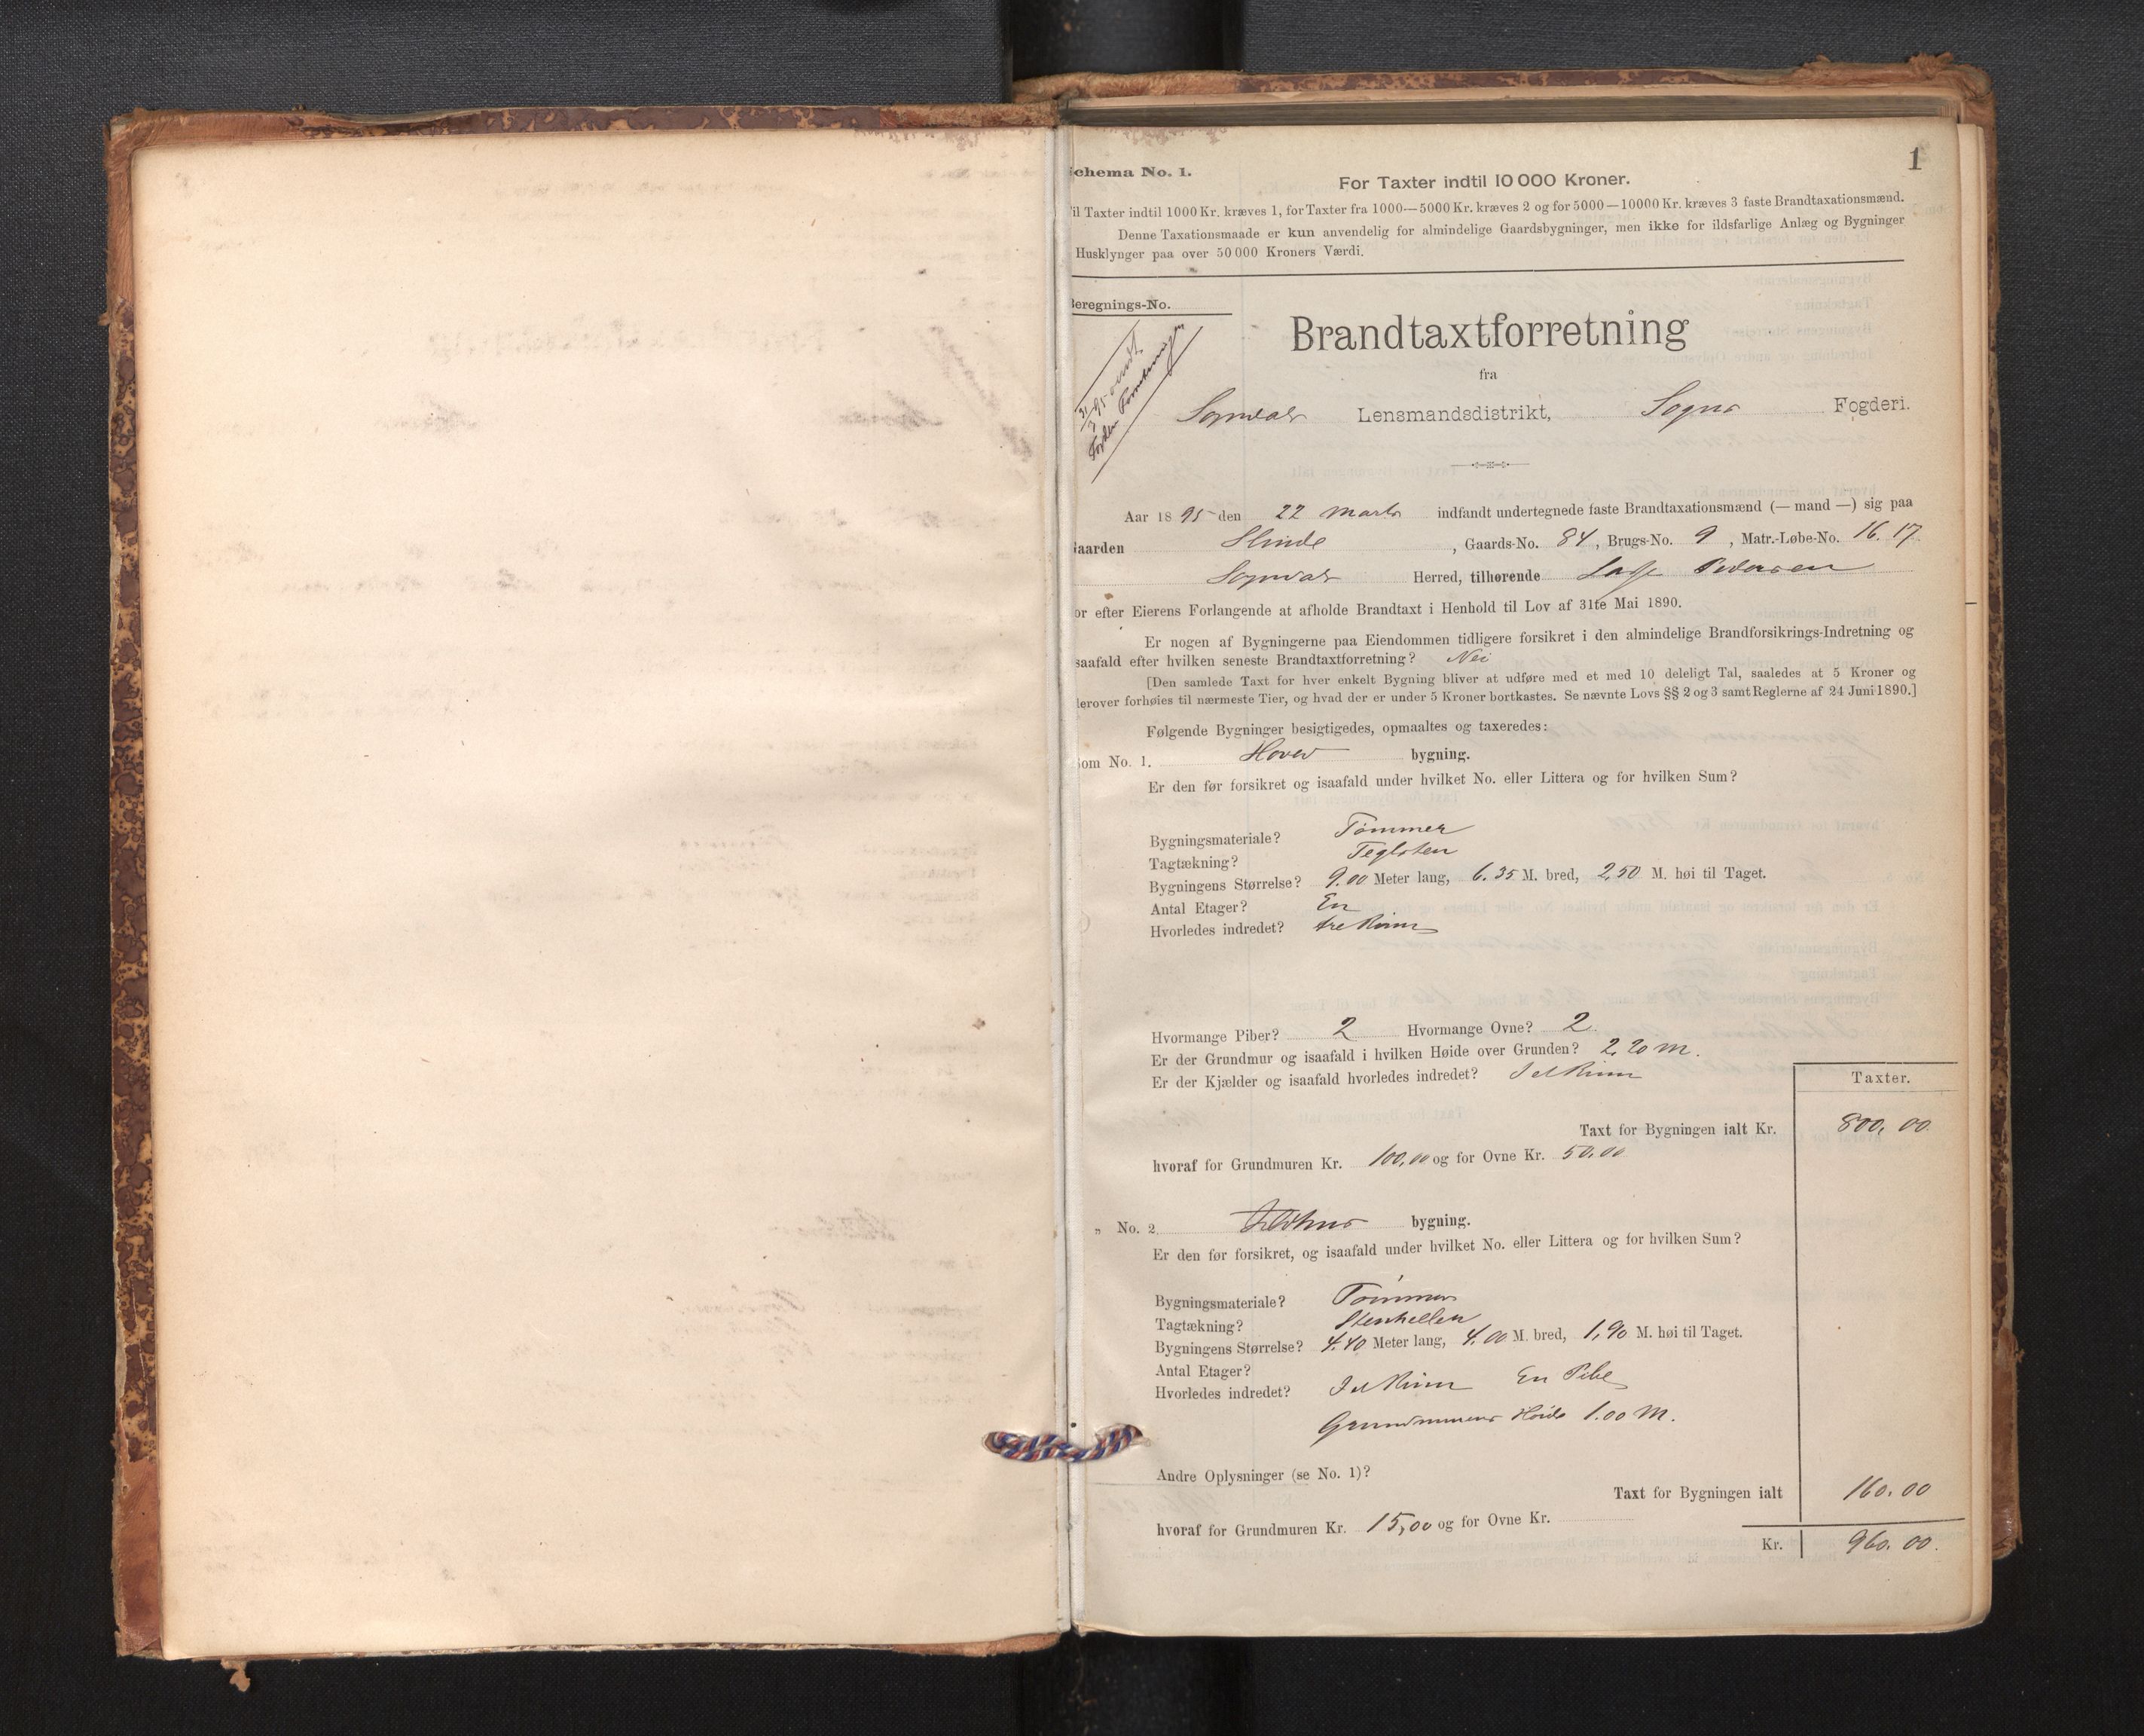 1
chema No. 1.
For Taxter indtil 10 000 Kroner.
il Taxter indtil 1000 Kr. kræves 1, for Taxter fra 1000—5000 Kr. kræves 2 og for 5000—10000 Kr. kræves 3 faste Brandtaxationsmænd.
Denne Taxationsmaade er kun anvendelig for almindelige Gaardsbygninger, men ikke for ildsfarlige Anlæg og Bygninger
Husklynger paa over 50 000 Kroners Værdi.
Beregnings-No.
Brandtaxtforretning
fra
Sogndals Lensmandsdistrikt, Sogns Fogderi.
Aar 1895 den 22 Marts indfandt undertegnede faste Brandtaxationsmænd (— mand —) sig paa
aarden Slinde, Gaards-No. 84, Brugs-No. 9, Matr.-Løbe-No. 16. 17
Sogndals Herred, tilhørende Lasse Pedersen
or efter Eierens Forlangende at afholde Brandtaxt i Henhold til Lov af 31te Mai 1890.
Er nogen af Bygningerne paa Eiendommen tidligere forsikret i den almindelige Brandforsikrings-Indretning og
saafald efter hvilken seneste Brandtaxtforretning? Nei
[Den samlede Taxt for hver enkelt Bygning bliver at udføre med et med 10 deleligt Tal, saaledes at 5 Kroner og
derover forhøies til nærmeste Tier, og hvad der er under 5 Kroner bortkastes. Se nævnte Lovs §§ 2 og 3 samt Reglerne af 24 Juni 1890.]
Følgende Bygninger besigtigedes, opmaaltes og taxeredes:
om No. 1. Hoved bygning.
Er den før forsikret og isaafald under hvilket No. eller Littera og for hvilken Sum?
Bygningsmateriale? Tømmer
Tagtækning? Teglsten
Bygningens Størrelse? 9.00 Meter lang, 6.35 M. bred, 2,50 M. høi til Taget.
Antal Etager? En
Hvorledes indredet? tre Rum
Hvormange Piber? 2 Hvormange Ovne? 2.
Er der Grundmur og isaafald i hvilken Høide over Grunden? 2,20 M.
Er der Kjælder og isaafald hvorledes indredet? I et Rum
Taxter.
Taxt for Bygningen ialt Kr. 800,00
hvoraf for Grundmuren Kr. 100,00 og for Ovne Kr. 50.00
„ No. 2. Ildhus bygning.
Er den før forsikret, og isaafald under hvilket No. eller Littera og for hvilken Sum?
Bygningsmateriale? Tømmer
Tagtækning? Stenheller
Bygningens Størrelse? 4.40 Meter lang, 4.00 M. bred, 1,90 M. høi til Taget.
Antal Etager?
Hvorledes indredet? I et Rum En Pibe
Grundmurens Høide 1.00 M.
Andre Oplysninger (se No. 1)?
Taxt for Bygningen ialt 160.00
hvoraf for Grundmuren Kr. 15,00 og for Ovne Kr.
Kr. 960.00.